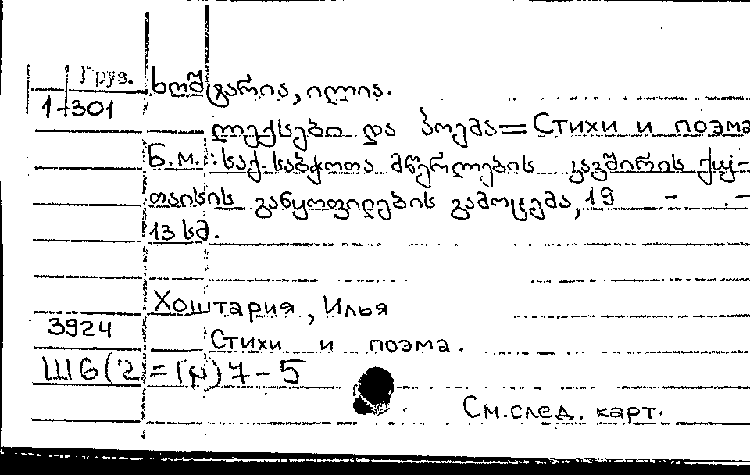 Груз. ხოშტარია, ილია.
1-301
ლექსები და პოემა = Стихи и поэма
Б.м.: საქ. საბჭოთა მწერლების კავშირის ქუ-
თაისის განყოფილების გამოცემა, 19 - . -
13 სმ.
Хоштария, Илья
3924
Стихи и поэма.
Ш6(2=Гр)7-5
См.след. карт.